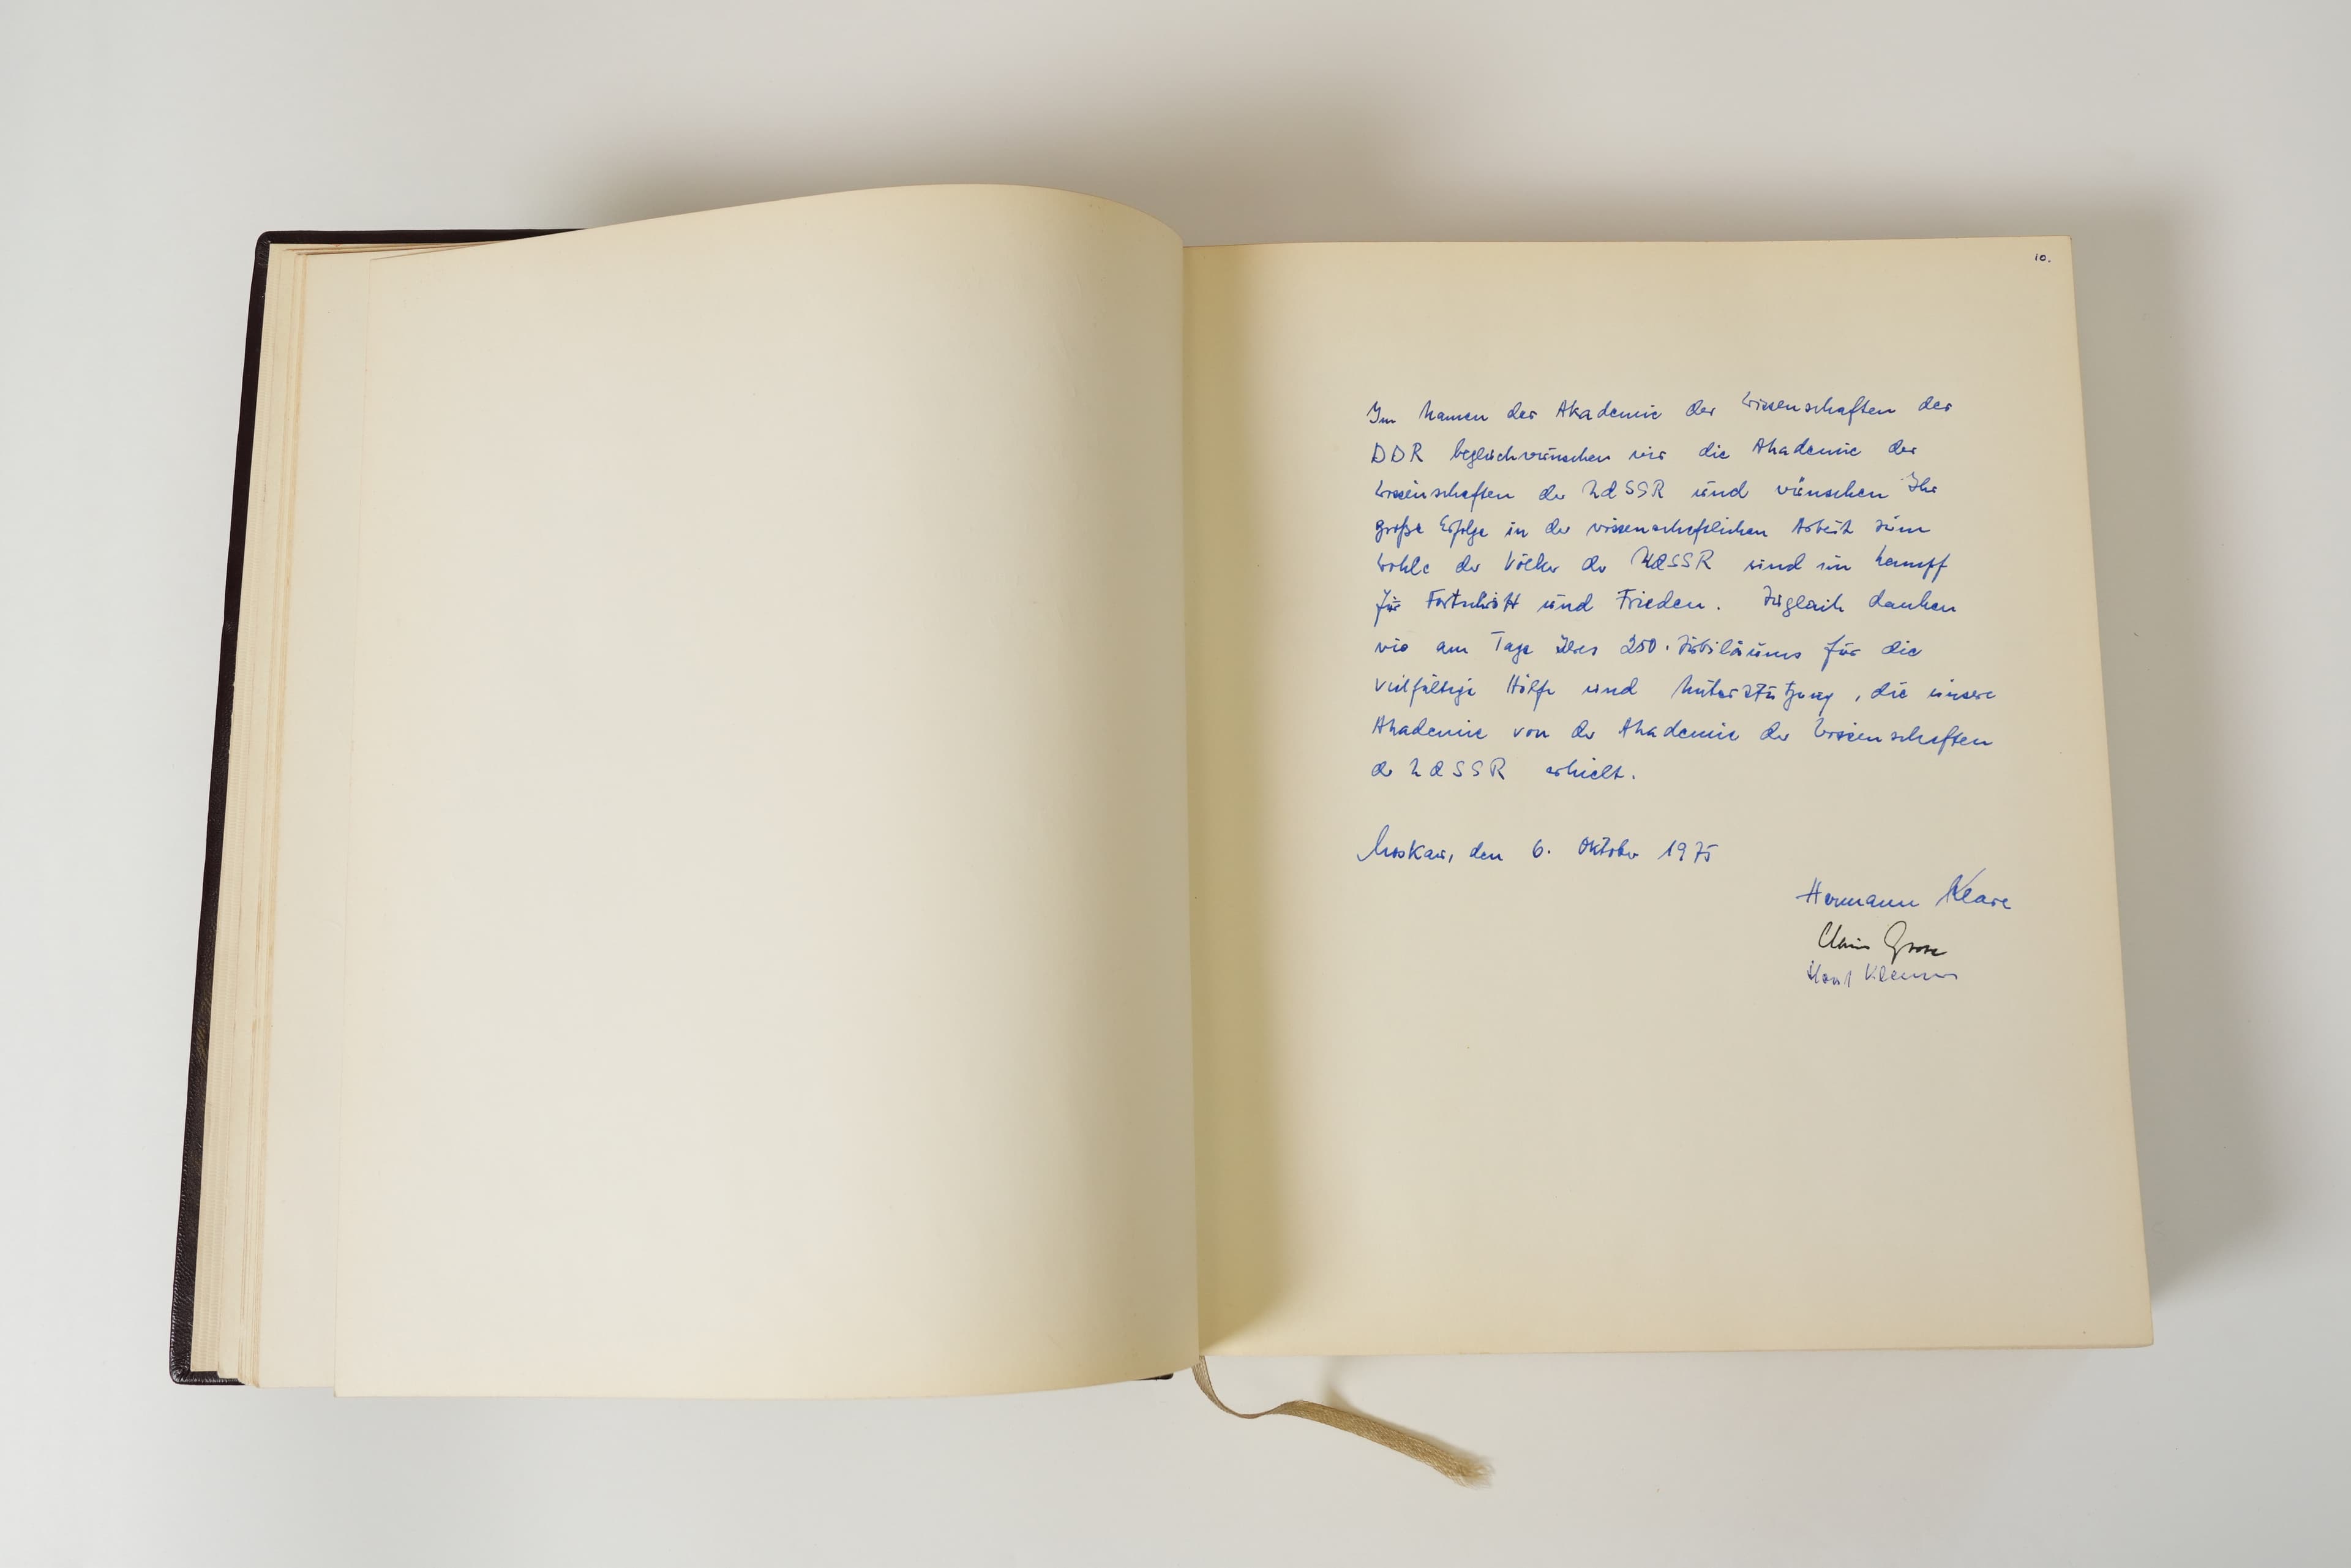 10.
Im Namen der Akademie der Wissenschaften der
DDR beglückwünschen wir die Akademie der
Wissenschaften der UdSSR und wünschen Ihr
große Erfolge in der wissenschaftlichen Arbeit zum
Wohle der Völker der UdSSR und im Kampf
für Fortschritt und Frieden. Zugleich danken
wir am Tage Ihres 250. Jubiläums für die
vielfältige Hilfe und Unterstützung, die unsere
Akademie von der Akademie der Wissenschaften
der UdSSR erhielt.
Moskau, den 6. Oktober 1975
Hermann Klare
Claus Grote
Horst Klemm